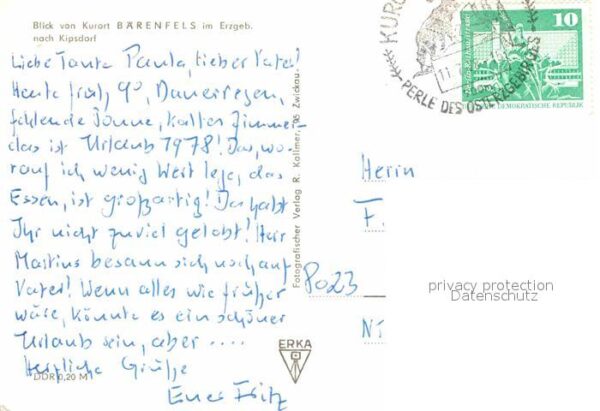 Blick von Kurort BÄRENFELS im Erzgeb.
nach Kipsdorf
Liebe Tante Paula, lieber Vater!
Heute früh, 9°, Dauerregen,
fehlende Sonne, kaltes Zimmer
das ist Urlaub 1978! Das, wo-
rauf ich wenig Wert lege, das
Essen, ist großartig! Das habt
Ihr nicht zuviel gelobt! Herr
Martius besann sich noch auf
Vater! Wenn alles wie früher
wäre, könnte es ein schöner
Urlaub sein, aber ....
Herzliche Grüße
Euer Fritz
DDR 0,20 M
Fotografischer Verlag R. Kallmer, 95 Zwickau
ERKA
KURO
PERLE DES OSTERZGEBIRGES
10
DEMOKRATISCHE REPUBLIK
Herrn
F.
8023
N
privacy protection
Datenschutz